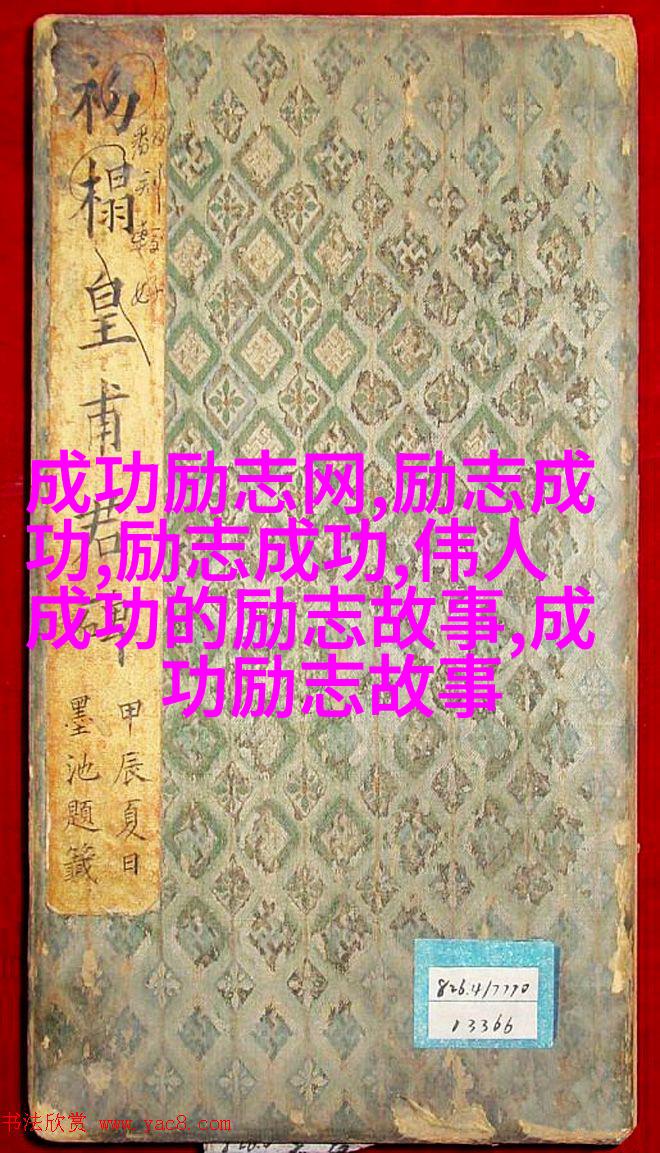 初榻皇甫君碑
甲辰夏日
墨池題籤
成功励志网,励志成
功,励志成功,伟人
成功的励志故事,成
功励志故事
826.4/7770
13366
书法欣赏 www.yac8.com